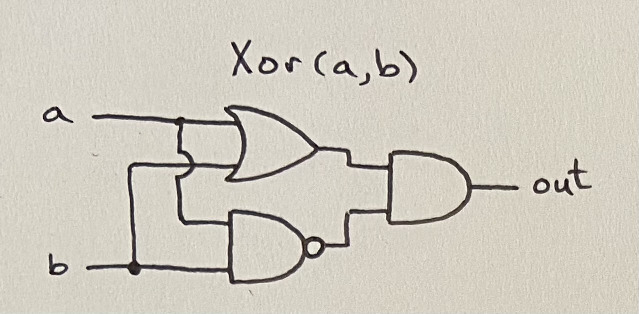 Xor(a,b)
a
out
b